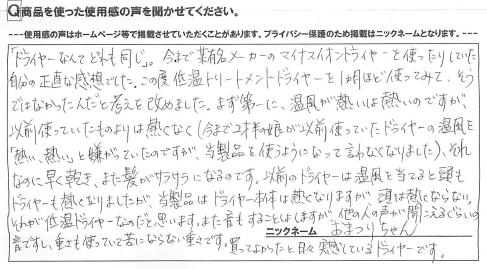 Q商品を使った使用感の声を聞かせてください。
---使用感の声はホームページ等で掲載させていただくことがあります。プライバシー保護のため掲載はニックネームとなります。---
「ドライヤーなんてどれも同じ」。今まで某有名メーカーのマイナスイオンドライヤーを使ったりしていた
自分の正直な感想でした。この度低温トリートメントドライヤーを1カ月ほど使ってみて、そう
ではなかったんだと考えを改めました。まず第一に、温風が熱いは熱いのですが
以前使っていたものよりは熱くなく(今まで2才半の娘が以前使っていたドライヤーの温風を
「熱い、熱い」と嫌がっていたのですが、当製品を使うようになって言わなくなりました)、それ
なのに早く乾き、また髪がサラサラになるのです。以前のドライヤーは温風を当てると頭も
ドライヤーも熱くなりましたが、当製品はドライヤー本体は熱くなりますが、頭は熱くならない。
それが低温ドライヤーなのだと思います。また音もすることはしますが、他の人の声が聞こえるぐらいの
音ですし、重さも使っていて苦にならない重さです。
ニックネーム
おまつりちゃん
買ってよかったと日々実感しているドライヤーです。